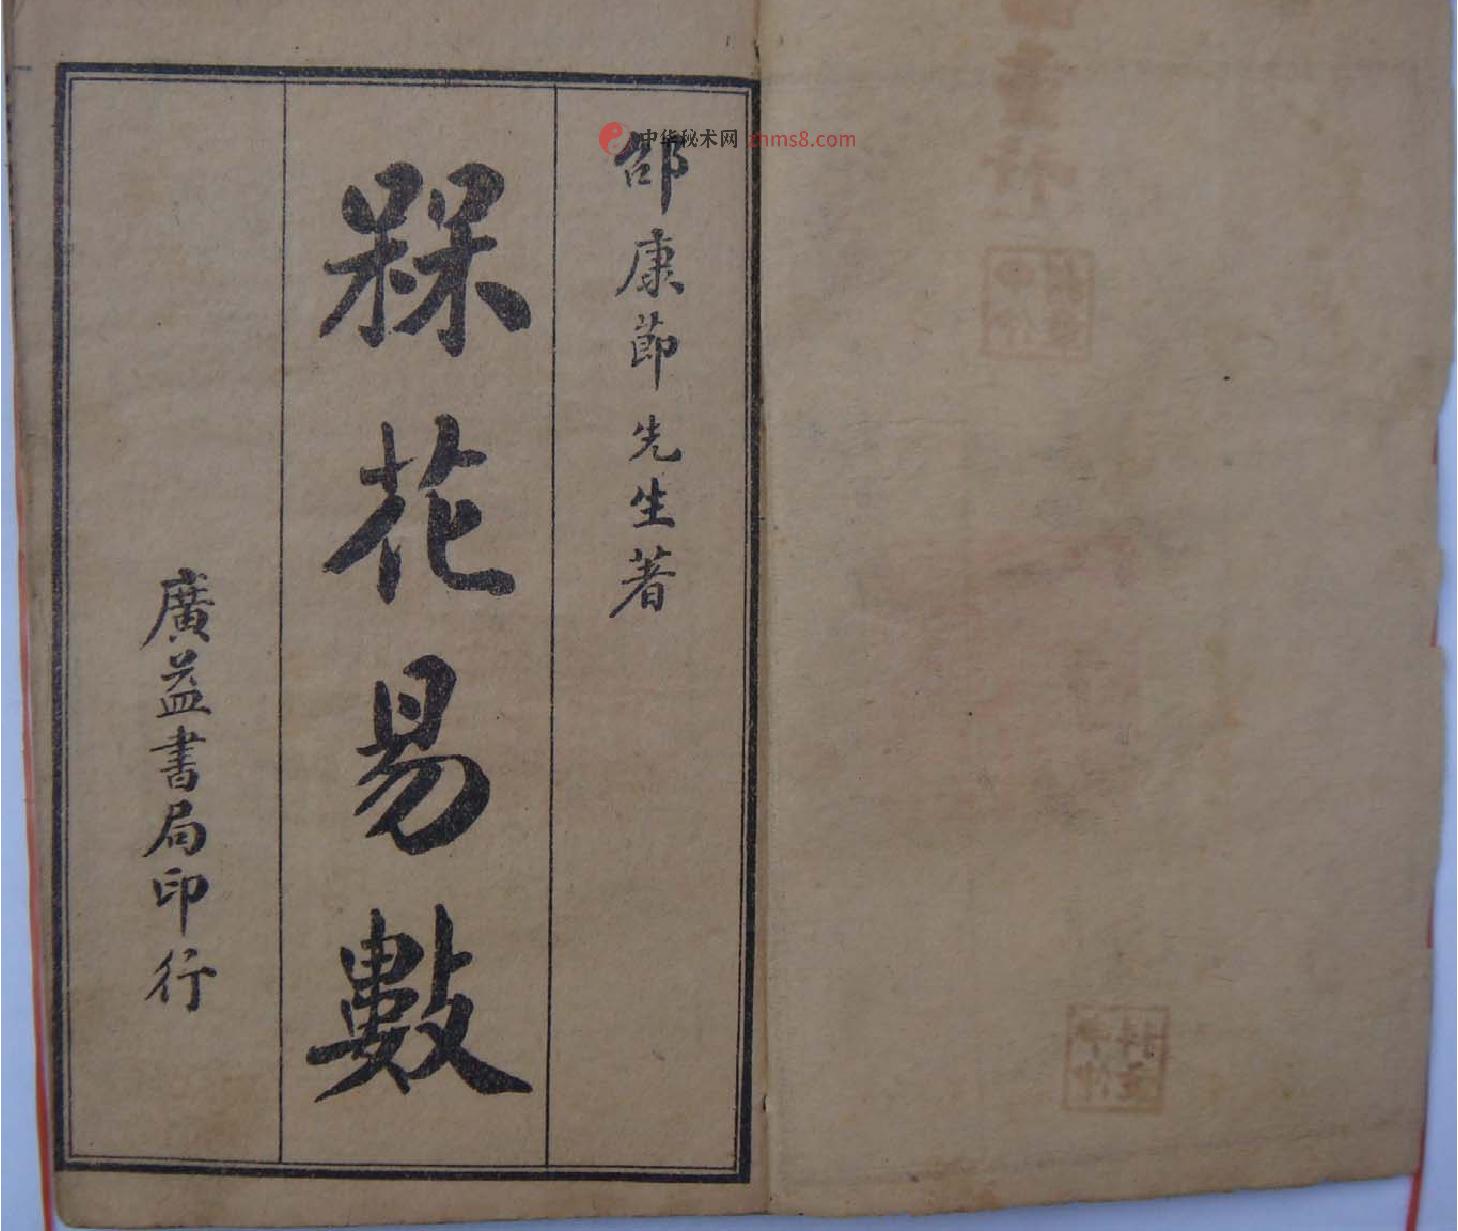 邵康莭先生著
槑花易數
廣益書局印行
中华秘术网 zhms8.com